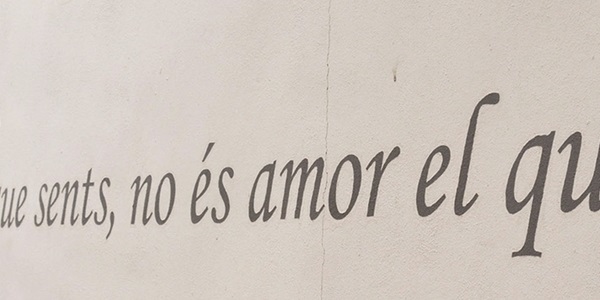 ue sents, no és amor el qu